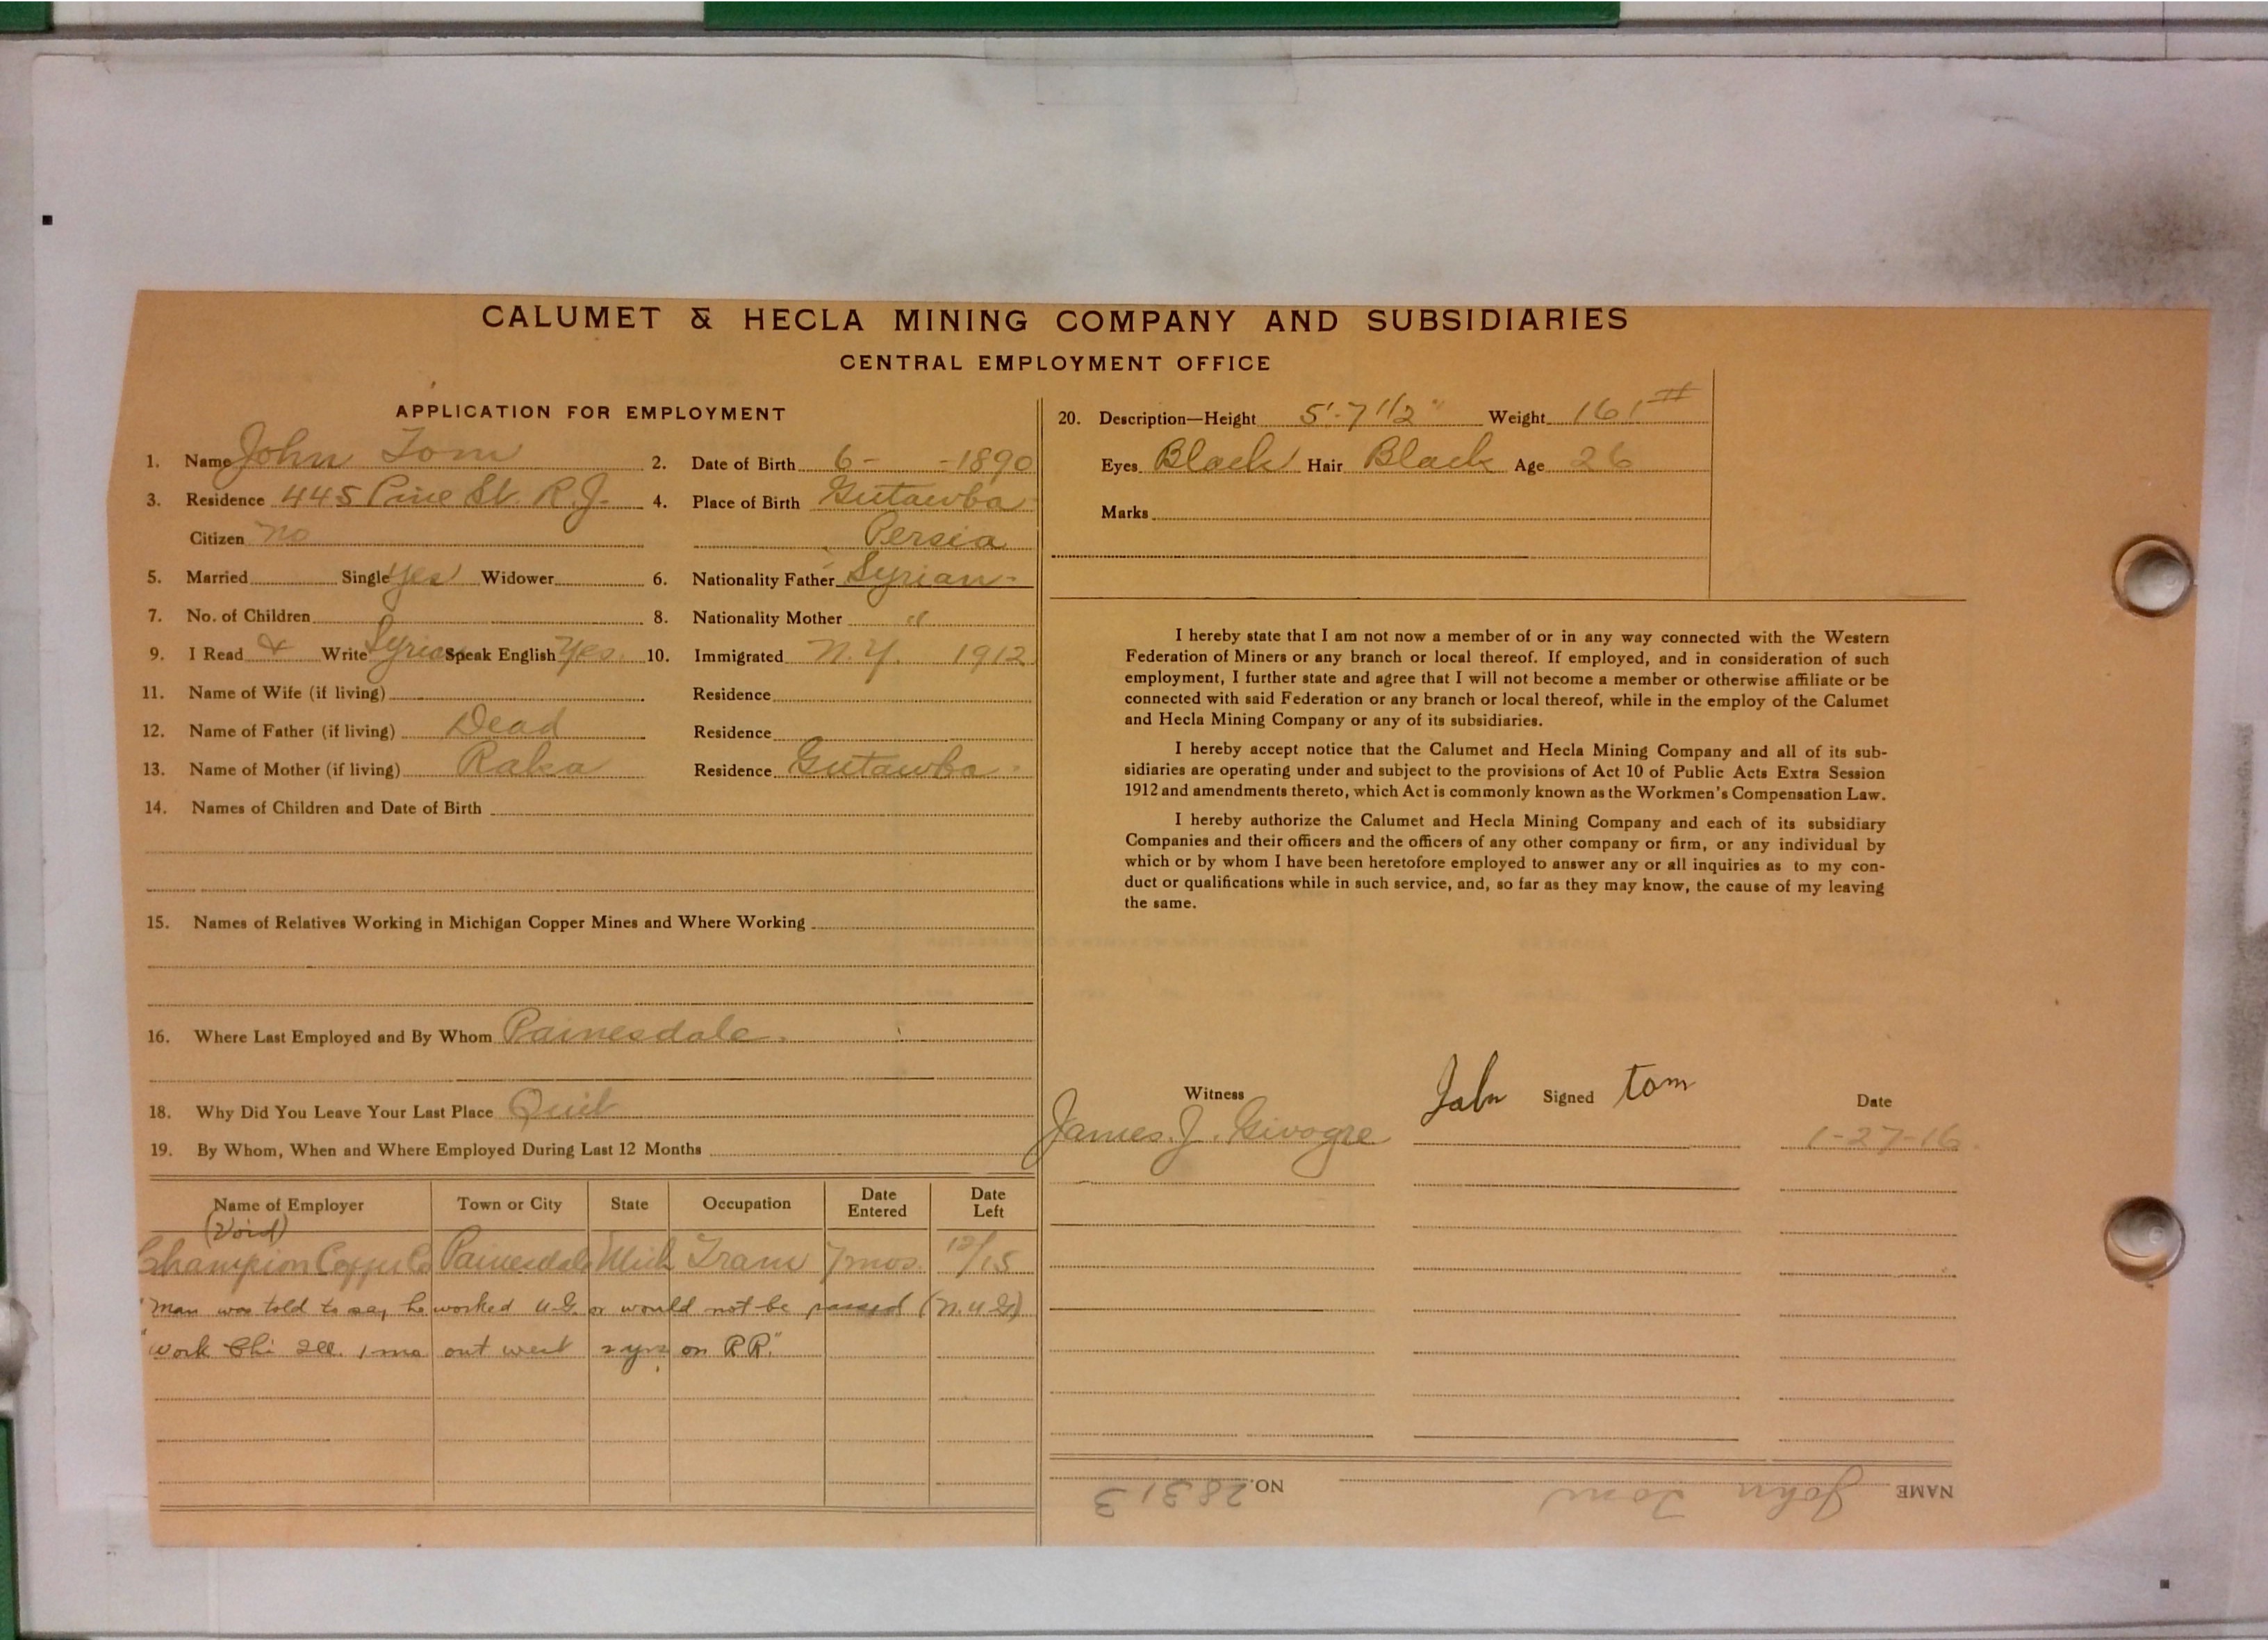 CALUMET & HECLA MINING COMPANY AND SUBSIDIARIES
CENTRAL EMPLOYMENT OFFICE
APPLICATION FOR EMPLOYMENT
1. Name John Tom 2. Date of Birth 6- -1890
3. Residence 445 Pine St. R.J. 4. Place of Birth Gutawba
Citizen no Persia
5. Married Single yes Widower 6. Nationality Father Syrian-
7. No. of Children 8. Nationality Mother "
9. I Read & Write Syrian Speak English Yes. 10. Immigrated N.Y. 1912
11. Name of Wife (if living) Residence
12. Name of Father (if living) Dead Residence
13. Name of Mother (if living) Raka Residence Gutawba.
14. Names of Children and Date of Birth
15. Names of Relatives Working in Michigan Copper Mines and Where Working
16. Where Last Employed and By Whom Painesdale.
18. Why Did You Leave Your Last Place Quit
19. By Whom, When and Where Employed During Last 12 Months
Name of Employer Town or City State Occupation Date Entered Date Left
(Void)
Champion Copper Co Painesdale Mich Tram 7 mos. 12/15
"Man was told to say he worked U.G. or would not be passed (N.U.G.)
"Work Chi Ill. 1 mo out west 2 yrs on RR."
20. Description—Height 5'-7 1/2" Weight 161 #
Eyes Black Hair Black Age 26
Marks
I hereby state that I am not now a member of or in any way connected with the Western
Federation of Miners or any branch or local thereof. If employed, and in consideration of such
employment, I further state and agree that I will not become a member or otherwise affiliate or be
connected with said Federation or any branch or local thereof, while in the employ of the Calumet
and Hecla Mining Company or any of its subsidiaries.
I hereby accept notice that the Calumet and Hecla Mining Company and all of its sub-
sidiaries are operating under and subject to the provisions of Act 10 of Public Acts Extra Session
1912 and amendments thereto, which Act is commonly known as the Workmen's Compensation Law.
I hereby authorize the Calumet and Hecla Mining Company and each of its subsidiary
Companies and their officers and the officers of any other company or firm, or any individual by
which or by whom I have been heretofore employed to answer any or all inquiries as to my con-
duct or qualifications while in such service, and, so far as they may know, the cause of my leaving
the same.
Witness John Signed tom Date
James. J. Givogre 1-27-16
NAME John Tom NO. 28313